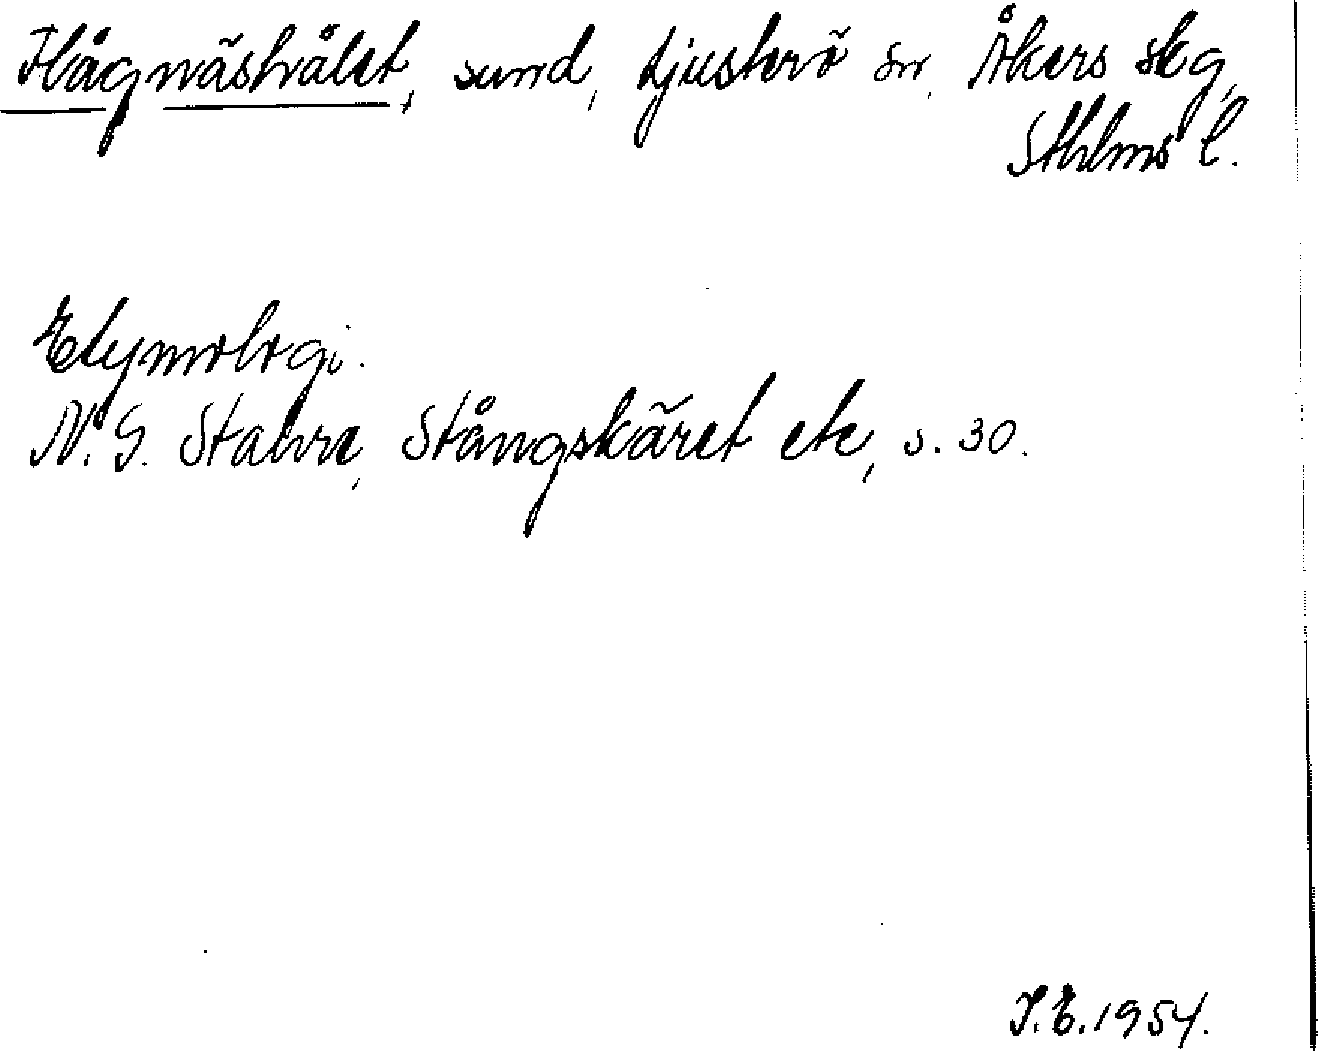 Hågnäshålet, sund, Ljusterö sn, Åkers skg,
Sthlms l.
Etymologi.
N. G. Stahre, Stångskäret etc, s. 30.
J. E. 1954.